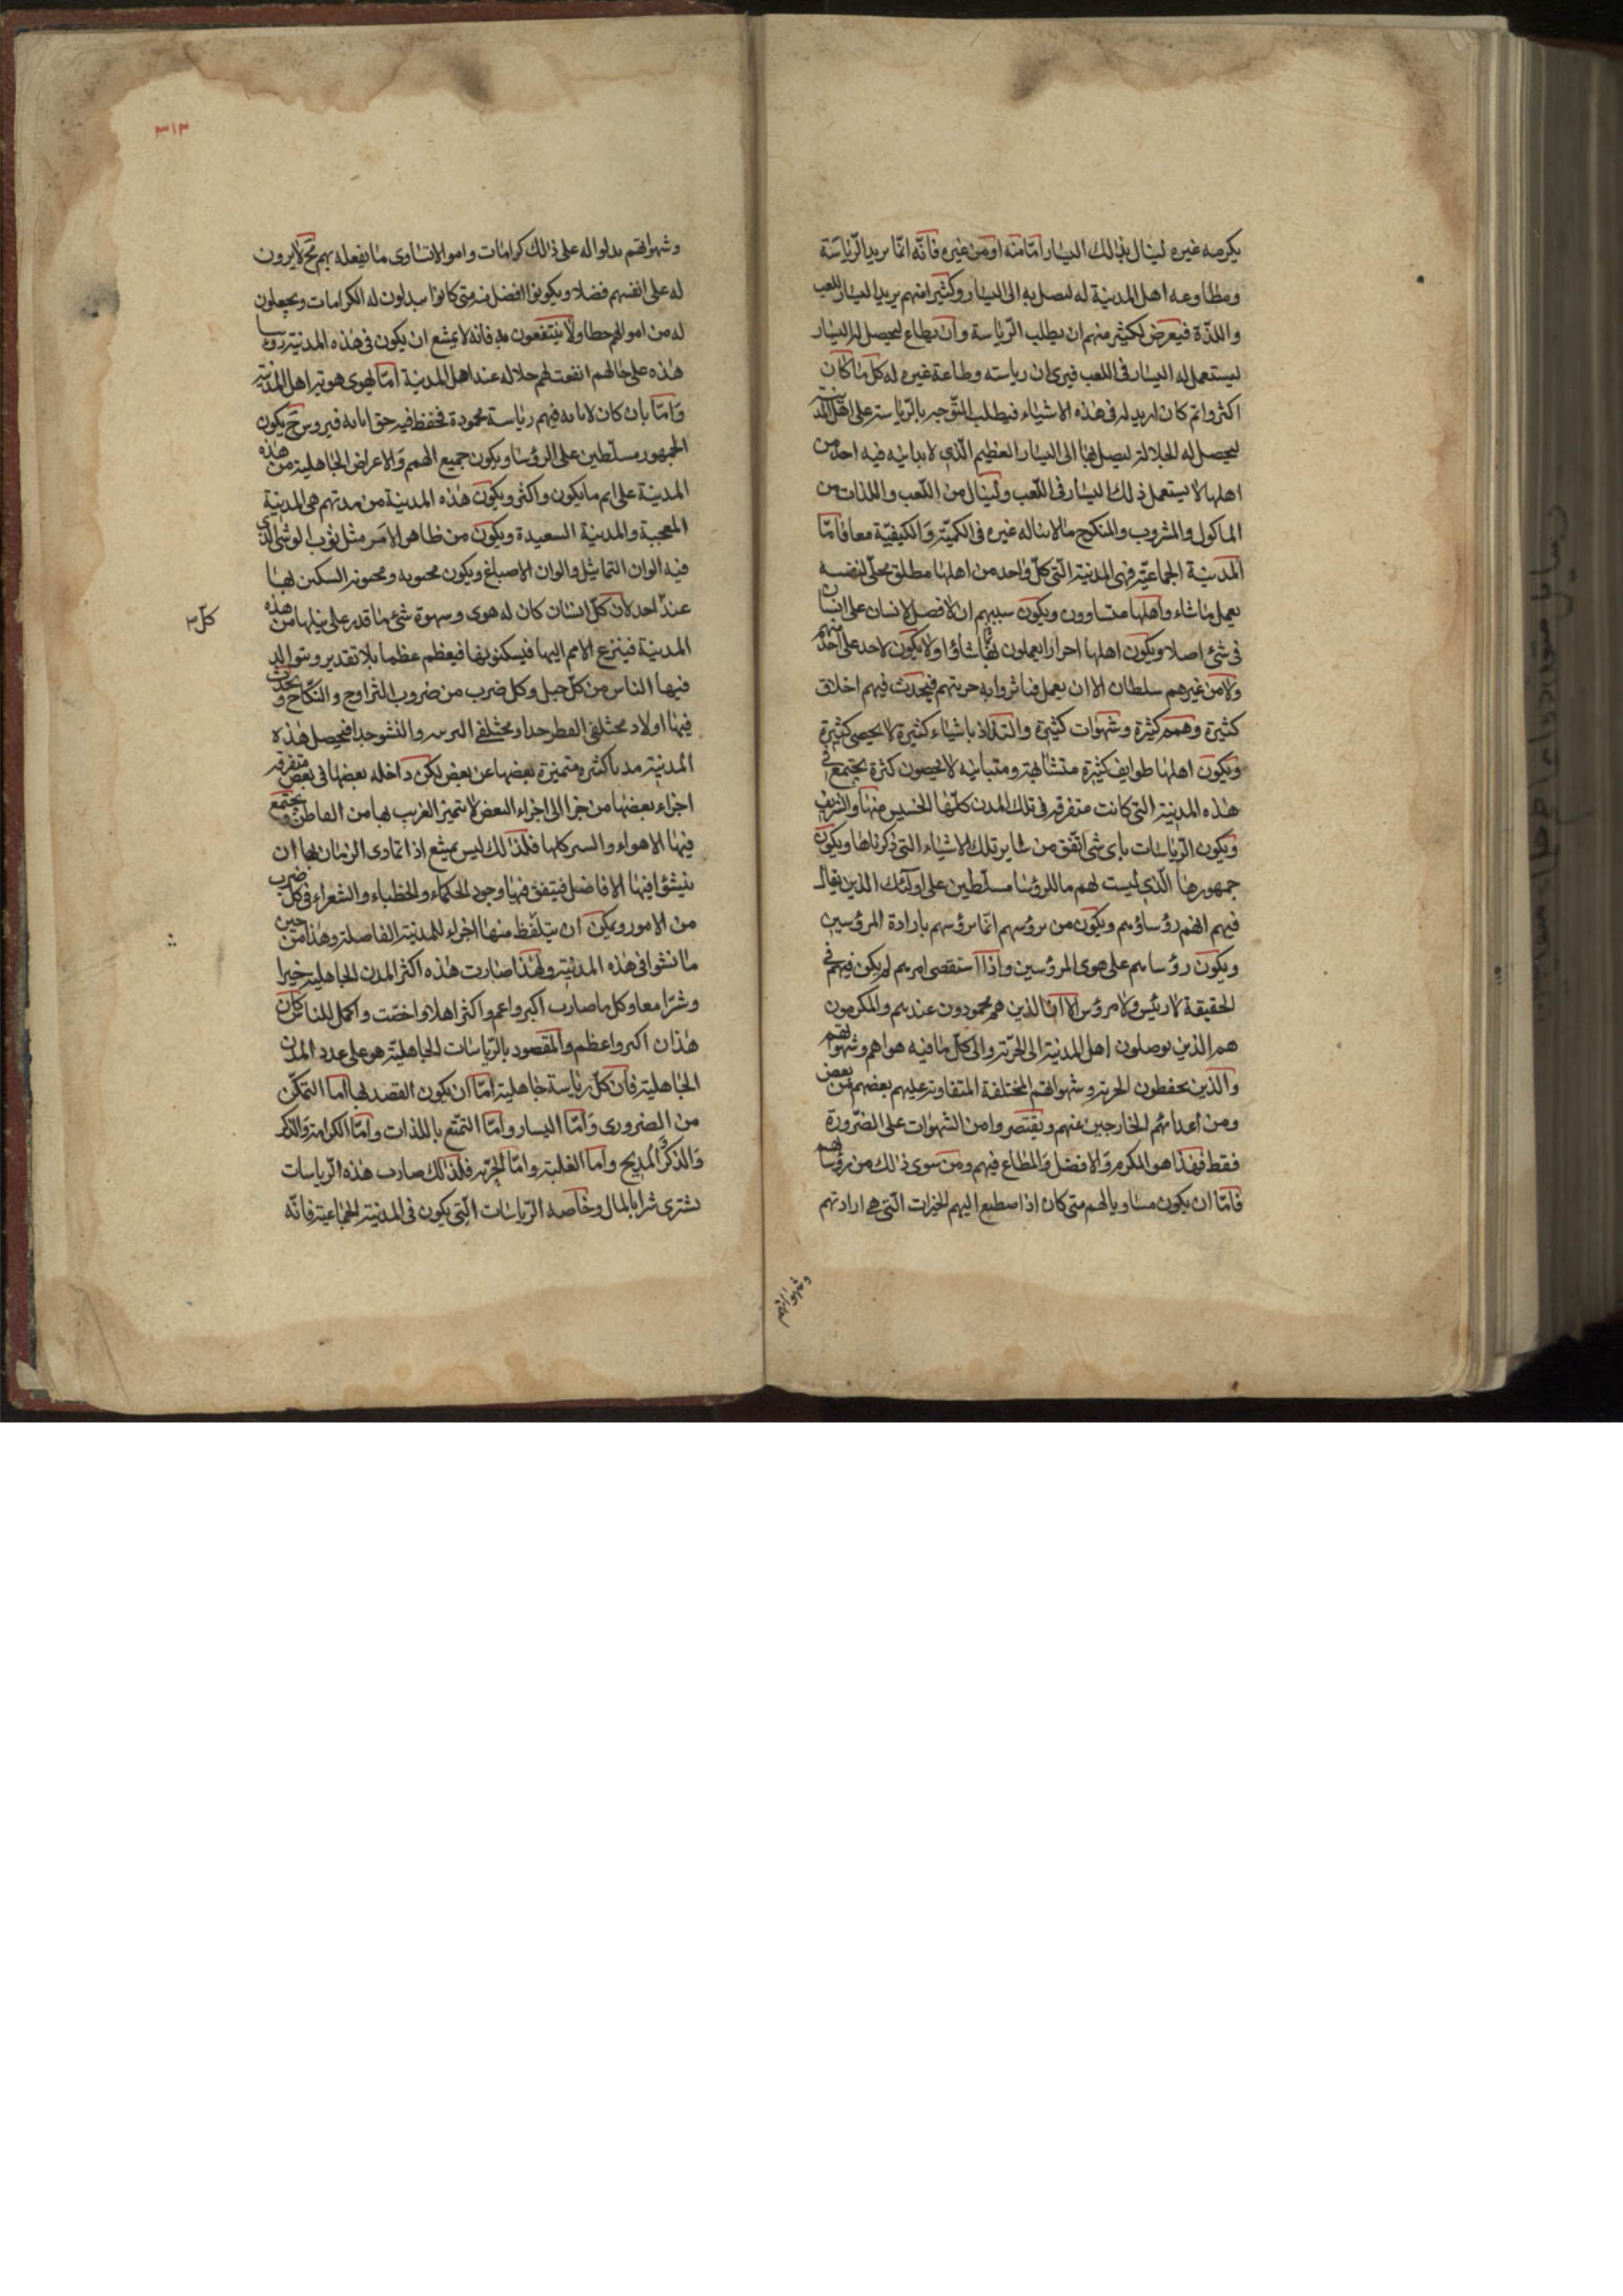 يكرمه غيره لينال بذلك اليسار امّا منه او من غيره فانّه انّما يريد الرّياسة
ومطاوعه اهل المدينة له ليصل به الى اليسار وكثير منهم يريد اليسار للعب
واللذّة فيعرض لكثير منهم ان يطلب الرّياسة وان يطاع ليحصل له اليسار
ليستعمل له اليسار فى اللعب فيرى ان رياسته وطاعة غيره له كل ما كان
اكثر واتم كان ازيد له فى هذه الاشياء فيطلب التّوجبه بالرّياسة على اهل المدينة
ليحصل له الجلالة ليصل بها الى اليسار العظيم الّذى لا يدانيه فيه احد من
اهلها لا يستعمل ذلك اليسار فى اللّعب ولينال من اللّعب واللذات من
الماكول والمشروب والمنكوح ما لا يناله غيره فى الكميّة والكيفيّة معا فامّا
المدينة الجماعيّة فهى المدينة الّتى كلّ واحد من اهلها مطلق محلّى لنفسه
يعمل ما شاء واهلها متساوون ويكون سببهم ان لا فضل لانسان على انسان
فى شئ اصلا ويكون اهلها احرارا يعملون بما شاؤا ولا يكون لاحد على احد منهم
ولا من غيرهم سلطان الا ان يعمل فما تروا به حريتهم فيحدث فيهم اخلاق
كثيرة وهمم كثيرة وشهوات كثيرة والتذاذ باشياء كثيرة لا يحصى كثيرة
ويكون اهلها طوايف كثيرة متشابهة ومتباينه لا يحصون كثرة يجتمع فى
هذه المدينة التى كانت متفرقه فى تلك المدن كلّها الخسيس منها والشريف
ويكون الرّياسات باى شئ اتّفق من ساير تلك الاشياء التى ذكرناها ويكون
جمهورها الّذى ليست لهم ما للرؤسا مسلّطين على اولئك الذين يقال
فيهم انهم رؤساؤهم ويكون من يرؤسهم انّما يرؤسهم بارادة المرؤسين
ويكون رؤساهم على هوى المرؤسين واذا استقصى امرهم لم يكن فيهم فى
الحقيقة لا رئيس ولا مرؤس الا ان الذين هم محمودون عندهم والمكرمون
هم الذين يوصلون اهل المدينة الى الحرّية والى كلّ ما فيه هواهم وشهواتهم
والّذين يحفظون الحرية وشهواتهم المختلفة المتفاوتة عليهم بعضهم من بعض
ومن اعدائهم الخارجين عنهم ويقتصروا من الشهوات على الضّرورة
فقط فهذا هو المكرم والافضل والمطاع فيهم ومن سوى ذلك من رؤسائهم
فامّا ان يكون مساويا لهم متى كان اذا اصطنع اليهم الخيرات الّتى هى ارادتهم
وشهواتهم
٣١٣
وشهواتهم بدلوا له على ذلك كرامات واموالا تساوى ما يفعله بهم فح لا يرون
له على انفسهم فضلا ويكونوا افضل منه متى كانوا يبدلون له الكرامات ويجعلون
له من اموالهم حطا ولا ينتفعون به فانه لا يمتنع ان يكون فى هذه المدينة رؤسا
هذه على حالهم اتفقت لهم جلاله عند اهل المدينة امّا لهوى هويه اهل المدينة
وامّا بان كان لابائه فيهم رياسة محمودة فحفظ فيه حق ابائه فيروس فح يكون
الجمهور مسلّطين على الرؤسا ويكون جميع الهمم والاعراض الجاهلية من هذه
المدينة على اتم ما يكون واكثر ويكون هذه المدينة من مدنهم هى المدينة
المعجبة والمدينة السعيدة ويكون من ظاهر الامر مثل ثوب الوشى الّذى
فيه الوان التماثيل والوان الاصباغ ويكون محبوبه ومحبوبة السكنى بها
عند احد لان كلّ انسان كان له هوى وسهوة شئ ما قدر على نيلها من هذه
كلّ ٣
المدينة فينزع الامم اليها فيسكنونها فيعظم عظما بلا تقدير ويتوالد
فيها الناس من كلّ جيل وكل ضرب من ضروب التراوج والنّكاح ويحدث
فيها اولاد مختلفى الفطر جدا ومختلفى التربيه والنشو جدا فيحصل هذه
المدينة مدنا كثيرة متميزة بعضها عن بعض لكن داخله بعضها فى بعض متفرقه
اجزاء بعضها من جزا الى اجزاء البعض لا يتميز الغريب بها من القاطن ويجتمع
فيها الاهواء والسير كلها فلذلك ليس يمتنع اذا تمادى الزمان بها ان
ينشؤا فيها الافاضل فيتفق فيها وجود الحكماء والخطباء والشعراء فى كل ضرب
من الامور ويمكن ان يتلفّظ منها اجزاء للمدينة الفاضلة وهذا من حين
ما نشوا فى هذه المدينة ولهذا صارت هذه اكثر المدن الجاهلية خيرا
وشرّا معا وكل ما صارت اكبر واعم واكثر اهلا واخصّت واكمل للناس كان
هذان اكبر واعظم والمقصود بالرّياسات الجاهليّة هو على عدد المدن
الجاهلية فان كلّ رياسة جاهلية امّا ان يكون القصد بها اما التمكّن
من الضرورى وامّا اليسار وامّا التمتّع باللذات وامّا الكرامة والذكر
والذكر المديح واما الغلبة وامّا الحرّية فلذلك صارت هذه الرّياسات
يشترى شرا بالمال وخاصه الرّياسات الّتى يكون فى المدينة الجماعية فانّه